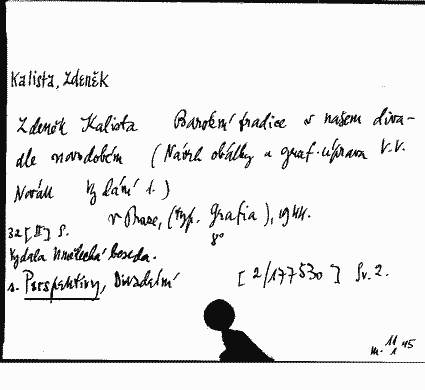 Kalista, Zdeněk
Zdeněk Kalista Barokní tradice v našem diva-
dle novodobém (Návrh obálky a graf. úprava V.V.
Novák Vydání 1.)
v Praze, (typ. Grafia), 1944.
32 [II] s. 8°
Vydala Umělecká beseda.
s. Perspektivy, Divadelní [2/177530] Sv. 2.
m. 11/1 45